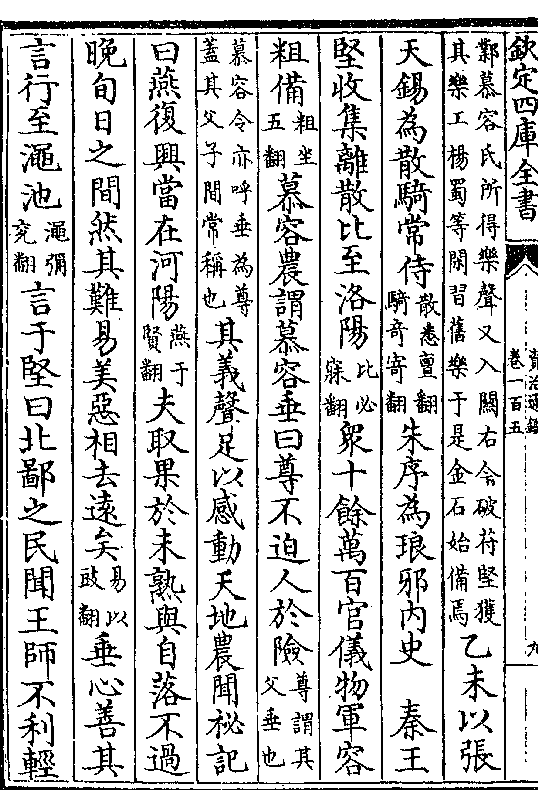 欽定四庫全書
資治通鑑
卷一百五
九
鄴慕容氏所得樂聲又入關右今破苻堅獲
其樂工楊蜀等閑習舊樂于是金石始備焉
乙未以張
天錫為散騎常侍散悉亶翻騎奇寄翻朱序為琅邪内史 秦王
堅收集離散比至洛陽比必寐翻衆十餘萬百官儀物軍容
粗備粗坐五翻慕容農謂慕容垂曰尊不迫人於險尊謂其父垂也
慕容令亦呼垂為尊
蓋其父子間常稱也
其義聲足以感動天地農聞祕記
曰燕復興當在河陽燕于賢翻夫取果於未熟與自落不過
晚旬日之間然其難易美惡相去遠矣易以豉翻垂心善其
言行至澠池澠彌兖翻言于堅曰北鄙之民聞王師不利輕